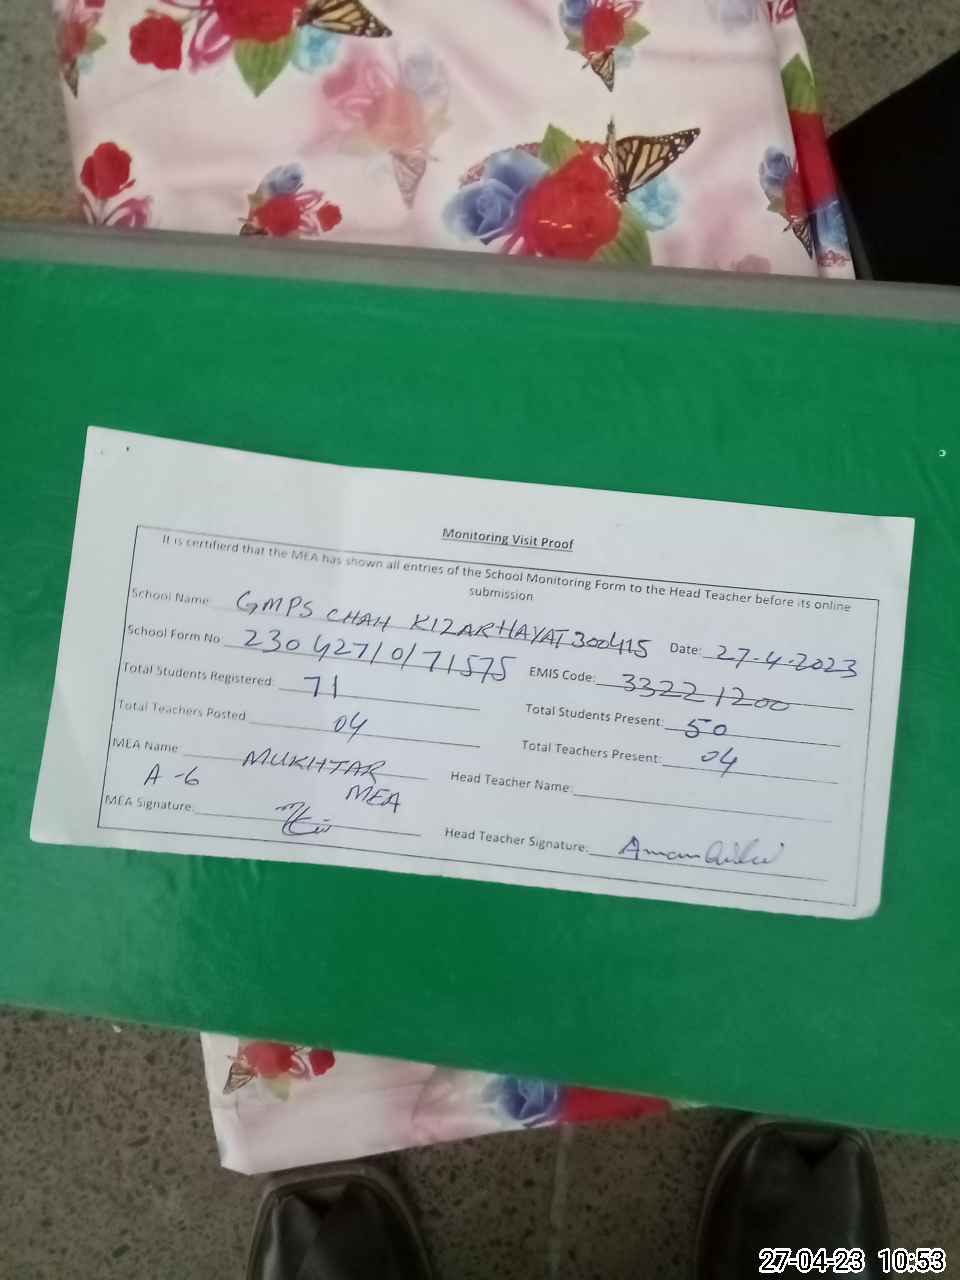 Monitoring Visit Proof
It is certifierd that the MEA has shown all entries of the School Monitoring Form to the Head Teacher before its online
submission
School Name: GMPS CHAH KIZARHAYAT 300415 Date: 27-4-2023
School Form No: 230427/0/71575 EMIS Code: 33221200
Total Students Registered: 71 Total Students Present: 50
Total Teachers Posted 04 Total Teachers Present: 04
MEA Name MUKHTAR Head Teacher Name:
A-6 MEA
MEA Signature: Head Teacher Signature: Aman
27-04-23 10:53